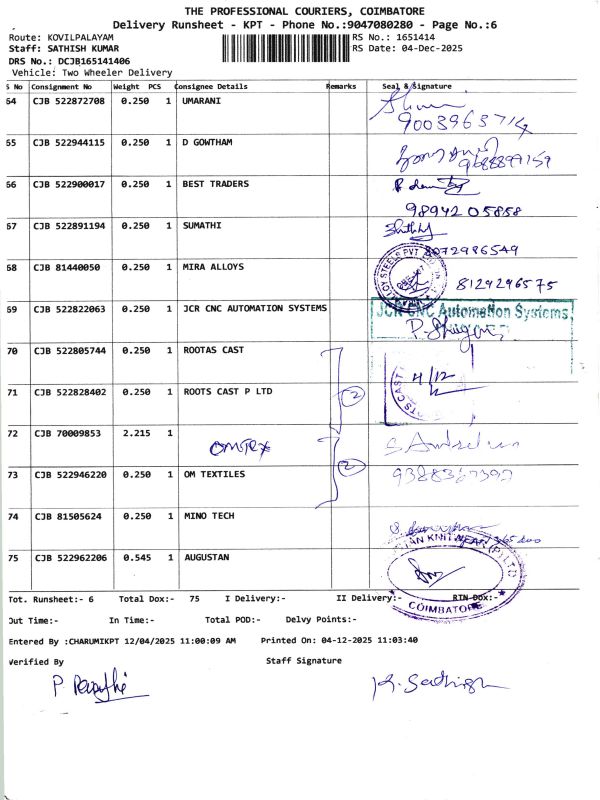 THE PROFESSIONAL COURIERS, COIMBATORE
Delivery Runsheet - KPT - Phone No.:9047080280 - Page No.:6
Route: KOVILPALAYAM
RS No.: 1651414
Staff: SATHISH KUMAR
RS Date: 04-Dec-2025
DRS No.: DCJB165141406
Vehicle: Two Wheeler Delivery
S No Consignment No Weight PCS Consignee Details Remarks Seal & Signature
64 CJB 522872708 0.250 1 UMARANI
9003963714
65 CJB 522944115 0.250 1 D GOWTHAM
9688897159
66 CJB 522900017 0.250 1 BEST TRADERS
98942 05858
67 CJB 522891194 0.250 1 SUMATHI
8072986549
68 CJB 81440050 0.250 1 MIRA ALLOYS
8129296575
69 CJB 522822063 0.250 1 JCR CNC AUTOMATION SYSTEMS
JCR CNC Automation Systems
70 CJB 522805744 0.250 1 ROOTAS CAST
4/12
71 CJB 522828402 0.250 1 ROOTS CAST P LTD
2
72 CJB 70009853 2.215 1
2
73 CJB 522946220 0.250 1 OM TEXTILES
74 CJB 81505624 0.250 1 MINO TECH
75 CJB 522962206 0.545 1 AUGUSTAN
KNITWEAR (P) LTD
COIMBATORE
Tot. Runsheet:- 6 Total Dox:- 75 I Delivery:- II Delivery:- RTN Dox:-
Out Time:- In Time:- Total POD:- Delvy Points:-
Entered By :CHARUMIKPT 12/04/2025 11:00:09 AM Printed On: 04-12-2025 11:03:40
Verified By Staff Signature
K. Sathish